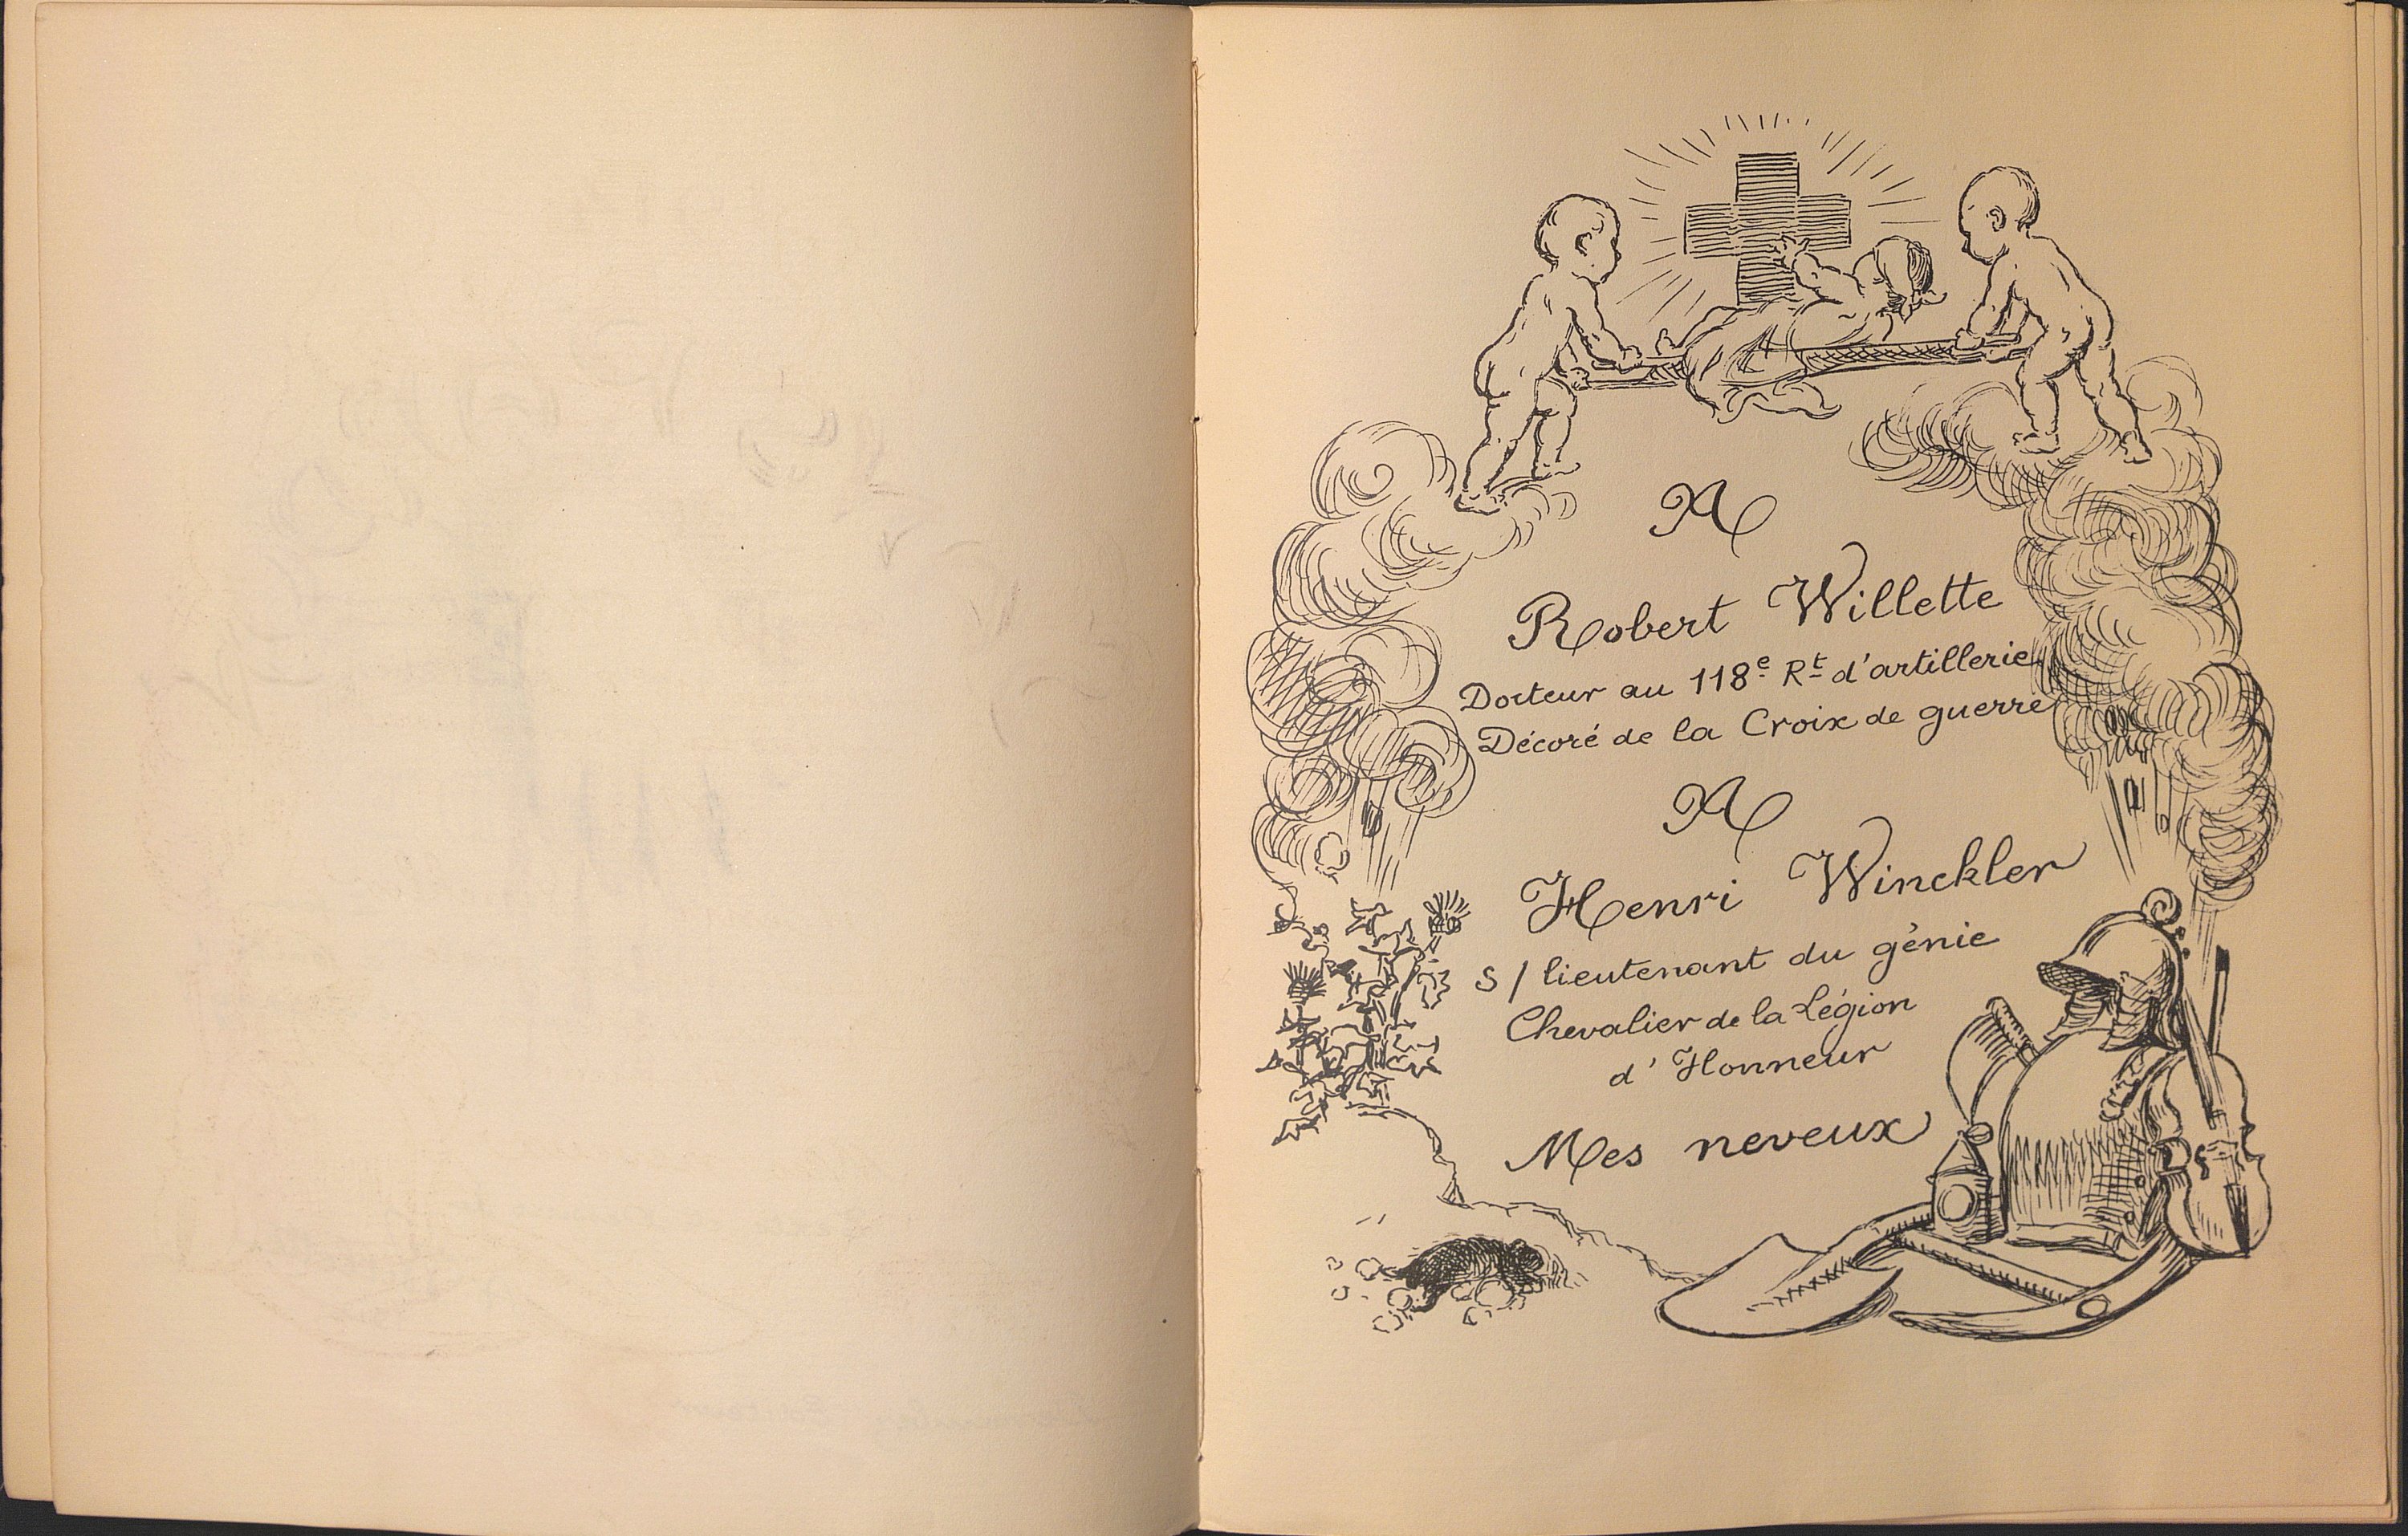 A
Robert Willette
Docteur au 118e Rt d'artillerie
Décoré de la Croix de guerre
A
Henri Winckler
S/lieutenant du génie
Chevalier de la Légion
d'Honneur
Mes neveux